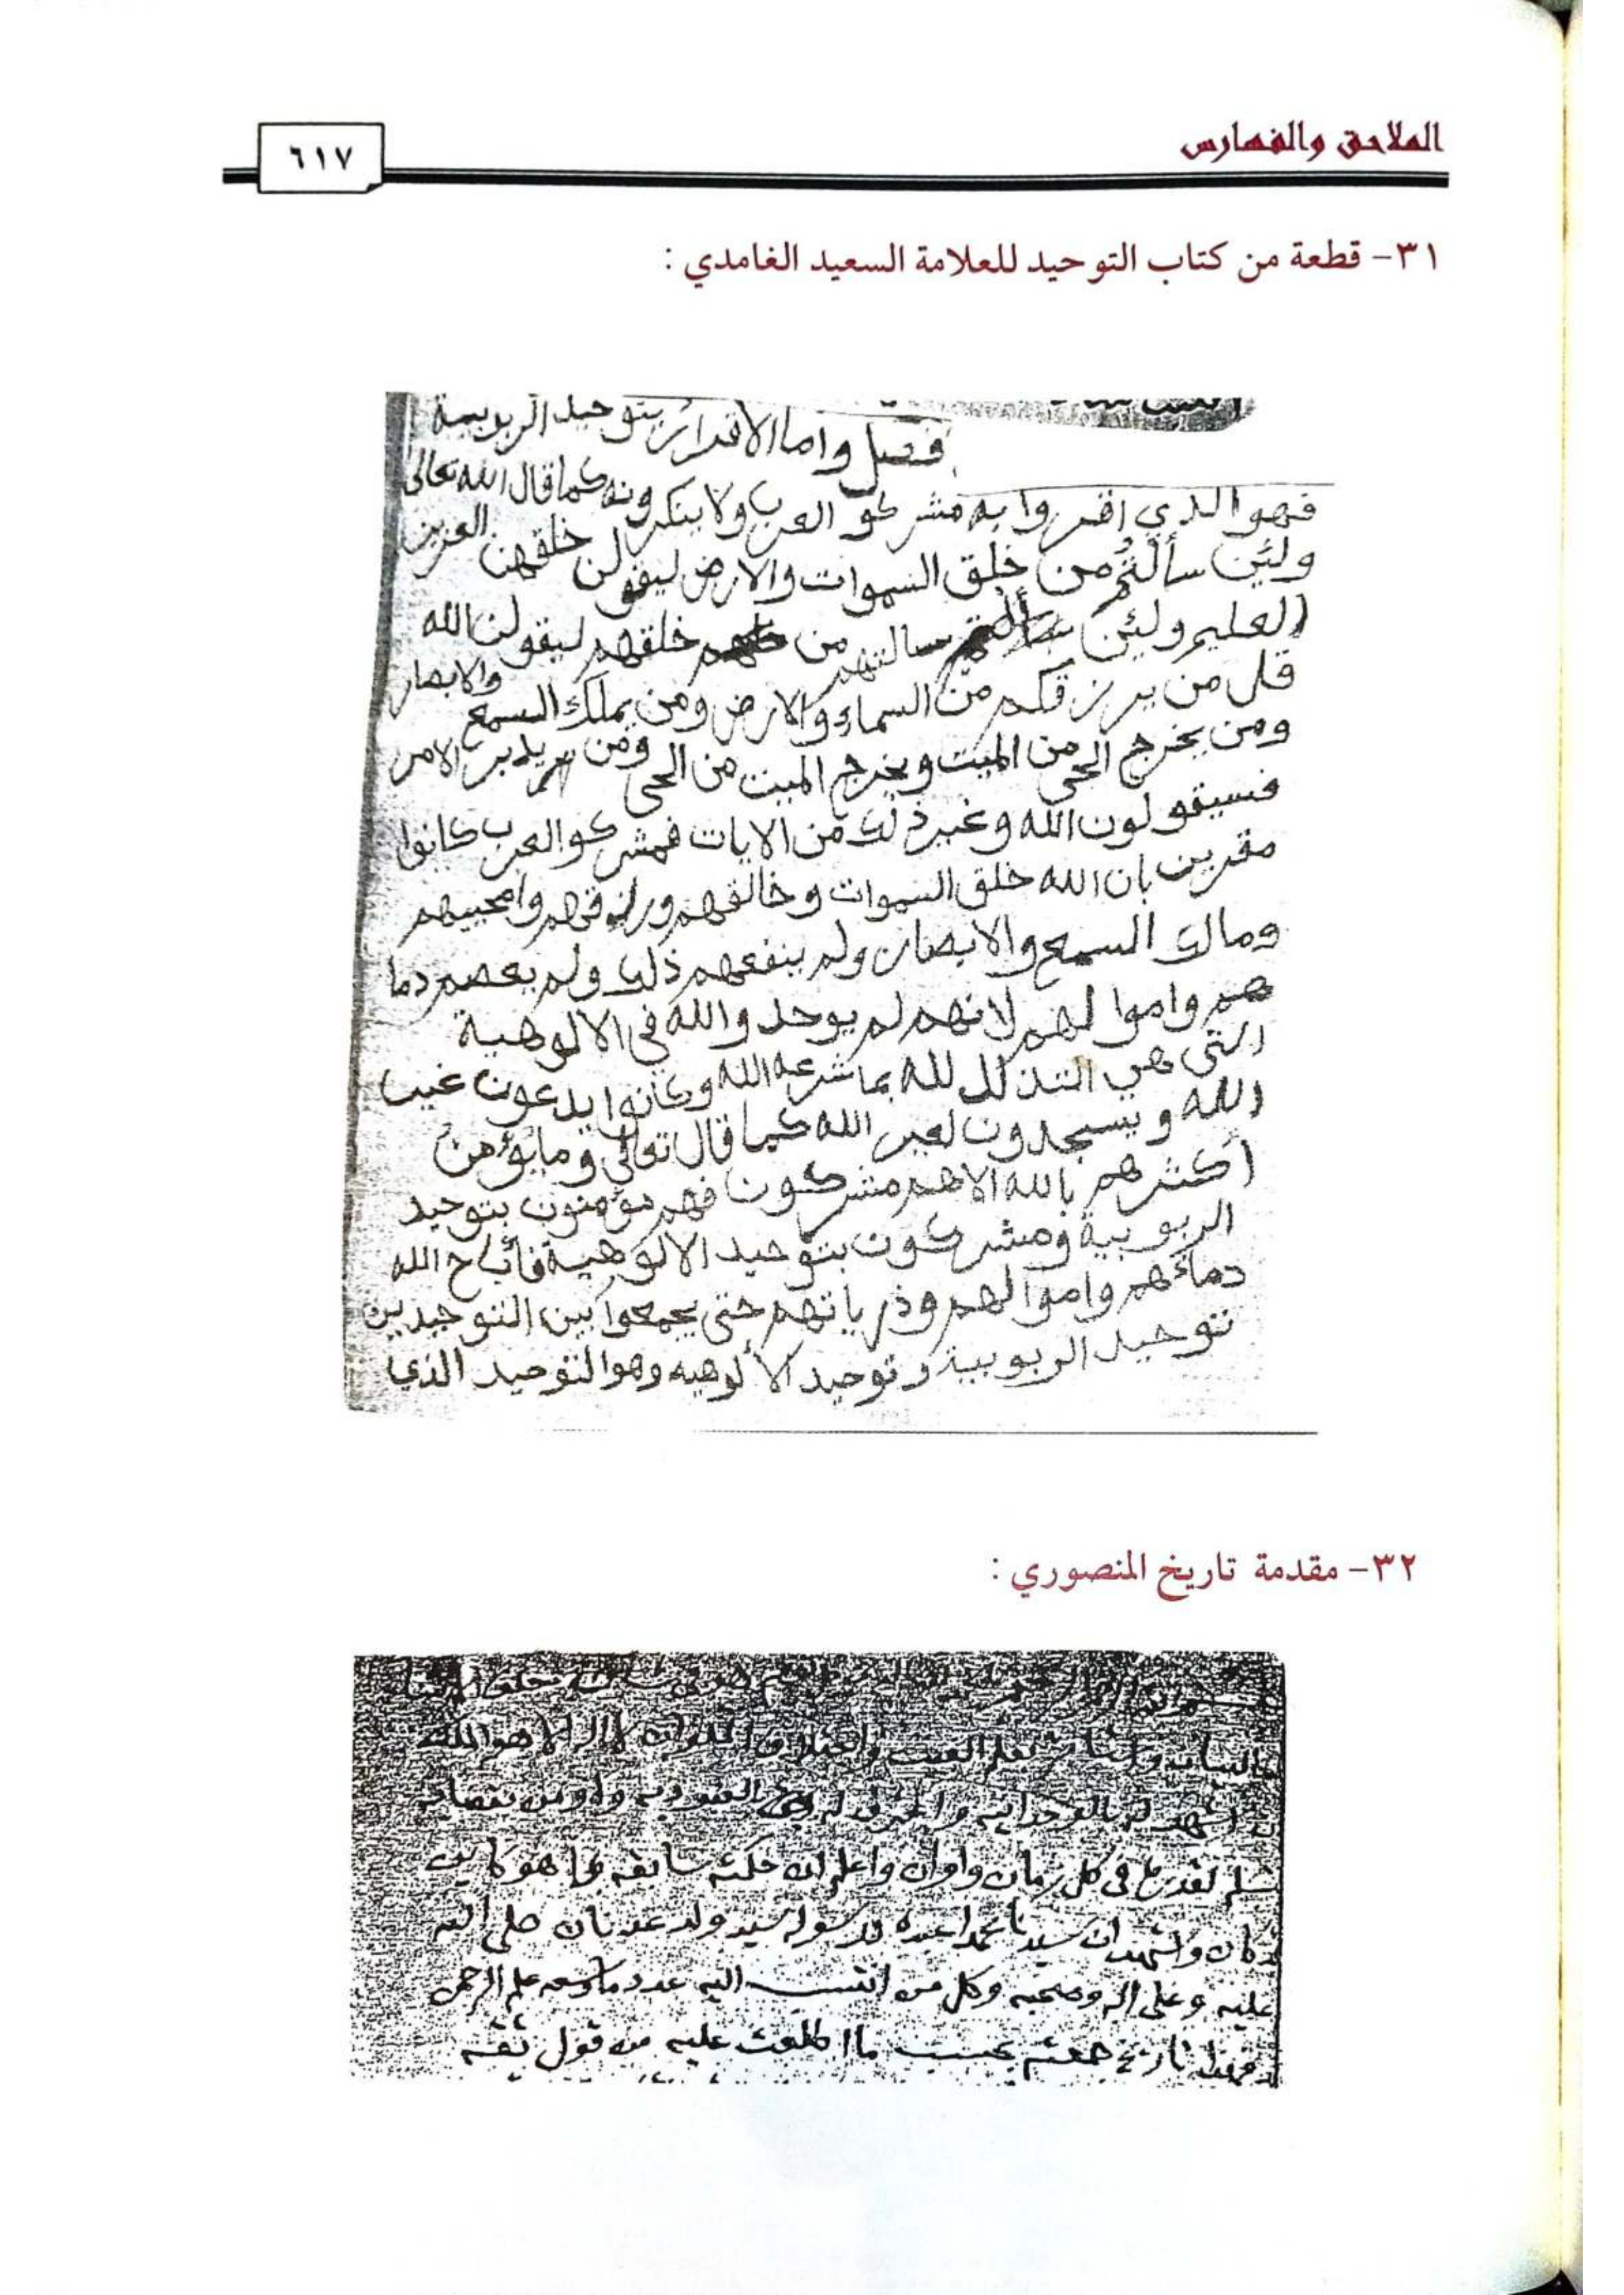 الملاحق والفهارس
٦١٧
٣١- قطعة من كتاب التوحيد للعلامة السعيد الغامدي :
فصل واما الاقرار بتوحيد الربوبية
فهو الذي اقروا به مشركو العرب ولا ينكرونه كما قال الله تعالى
ولئن سألتهم من خلق السموات والارض ليقولن خلقهن العزيز
العليم ولئن سالتهم من خلقهم ليقولن الله
قل من يرزقكم من السماء والارض ومن يملك السمع والابصار
ومن يخرج الحي من الميت ويخرج الميت من الحي ومن يدبر الامر
فسيقولون الله وغير ذلك من الايات فمشركو العرب كانوا
مقرين بان الله خلق السموات وخالقهم ورازقهم وامحييهم
ومالك السمع والابصار ولم ينفعهم ذلك ولم يعصم دما
هم واموالهم لانهم لم يوحدو الله في الالوهية
التي هي التذلل لله بما شرعه الله وكانوا يدعون غير
الله ويسجدون لغير الله كما قال تعالى وما يؤمن
أكثرهم بالله الا هم مشركون فهم مؤمنون بتوحيد
الربوبية ومشركون بتوحيد الالوهية فأباح الله
دمائهم واموالهم وذرياتهم حتى يجمعوا بين التوحيدين
توحيد الربوبية وتوحيد الألوهيه وهو التوحيد الذي
٣٢- مقدمة تاريخ المنصوري :
لا اله الا هو الملك
اشهد له بالوحدانيه
في كل زمان واوان واعلم ان حكمته سابقه بما هو كاين
كان واشهد ان سيدنا محمدا عبده ورسوله سيد ولد عدنان صلى الله
عليه وعلى اله وصحبه وكل من انتسب اليه عدد ما وسعه علم الرحمن
تاريخ جمعته بحسب ما اطلعت عليه من قول ثقه